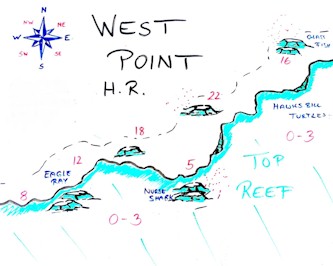 N
NW
NE
W
E
SW
SE
S
WEST
POINT
H.R.
GLASS
FISH
16
HAWKSBILL
TURTLES
22
0-3
18
12
5
TOP
REEF
EAGLE
RAY
NURSE
SHARK
8
0-3